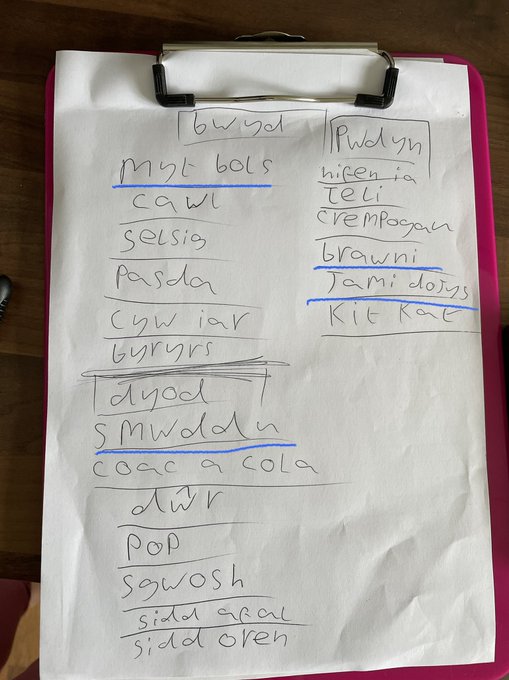 bwyd
Myt bols
cawl
selsig
pasda
cyw iar
byryrs
dyod
sMwddn
coac a cola
dŵr
pop
sgwosh
sidd afal
sidd oren
Pwdyn
hifen ia
Jeli
crempogau
brawni
Jami dojys
Kit Kat